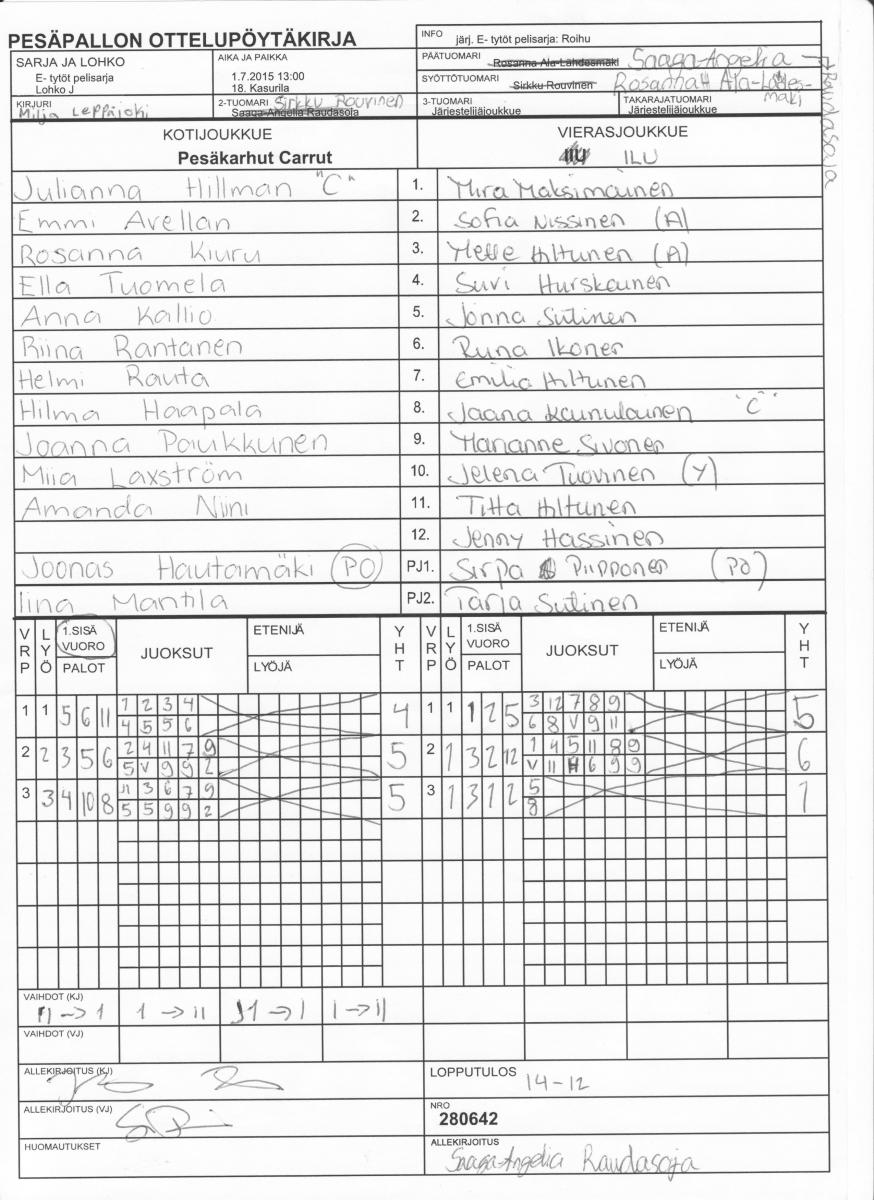 PESÄPALLON OTTELUPÖYTÄKIRJA
INFO järj. E- tytöt pelisarja: Roihu
SARJA JA LOHKO
E- tytöt pelisarja
Lohko J
AIKA JA PAIKKA
1.7.2015 13:00
18. Kasurila
PÄÄTUOMARI Rosanna Ala-Lähdesmäki Saaga-Angelia Raudasoja
SYÖTTÖTUOMARI Sirkku Rouvinen Rosanna Ala-Lähdesmäki
KIRJURI Milja Leppäjoki
2-TUOMARI Sirkku Rouvinen
Saaga-Angelia Raudasoja
3-TUOMARI
Järjestelijäjoukkue
TAKARAJATUOMARI
Järjestelijäjoukkue
KOTIJOUKKUE VIERASJOUKKUE
Pesäkarhut Carrut ILU
Julianna Hillman "C" 1. Mira Maksimainen
Emmi Avellan 2. Sofia Nissinen (A)
Rosanna Kiuru 3. Mette Hiltunen (A)
Ella Tuomela 4. Suvi Hurskainen
Anna Kallio 5. Jonna Sutinen
Riina Rantanen 6. Runa Ikonen
Helmi Rauta 7. Emilia Hiltunen
Hilma Haapala 8. Jaana Kainulainen "C"
Joanna Paukkunen 9. Marianne Sivonen
Miia Laxström 10. Jelena Tuovinen (Y)
Amanda Niini 11. Titta Hiltunen
12. Jenny Hassinen
Joonas Hautamäki (PO) PJ1. Sirpa Piipponen (PO)
Iina Mantila PJ2. Tarja Sutinen
VRP LYÖ 1.SISÄ VUORO PALOT JUOKSUT ETENIJÄ LYÖJÄ YHT VRP LYÖ 1.SISÄ VUORO PALOT JUOKSUT ETENIJÄ LYÖJÄ YHT
1 1 5 6 11 1 2 3 4 4 1 1 1 2 5 3 12 7 8 9 5
4 5 5 6 6 8 V 9 11
2 2 3 5 6 2 4 11 7 9 5 2 1 3 2 12 1 4 5 11 8 9 6
5 V 9 9 2 V 11 6 9 9
3 3 4 10 8 11 3 6 7 9 5 3 1 3 1 2 5 1
5 5 9 9 2 8
VAIHDOT (KJ)
11 -> 1 1 -> 11 11 -> 1 1 -> 11
VAIHDOT (VJ)
ALLEKIRJOITUS (KJ) LOPPUTULOS 14-12
ALLEKIRJOITUS (VJ) NRO
280642
HUOMAUTUKSET ALLEKIRJOITUS
Saaga-Angelia Raudasoja